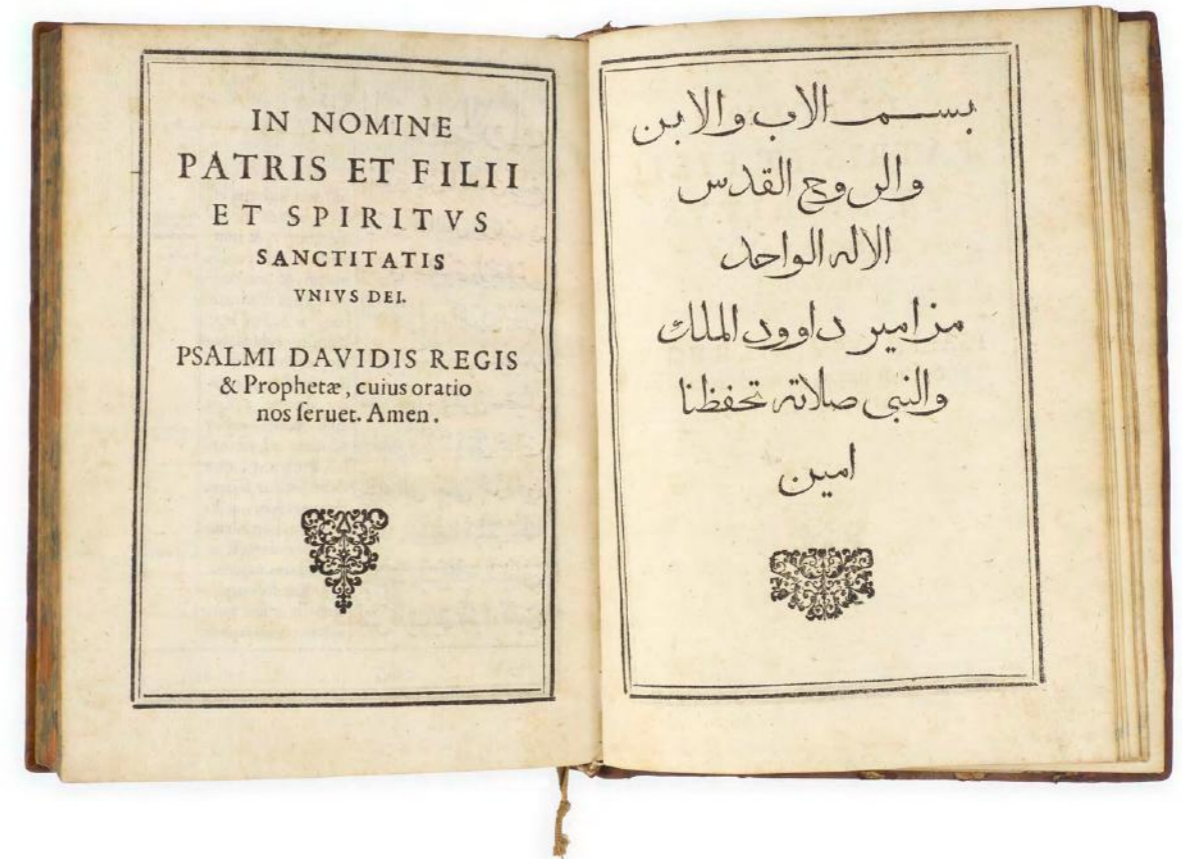 IN NOMINE
PATRIS ET FILII
ET SPIRITVS
SANCTITATIS
VNIVS DEI.
PSALMI DAVIDIS REGIS
& Prophetæ, cuius oratio
nos ſeruet. Amen.
بسم الاب والابن
والروح القدس
الاله الواحد
مزامير داوود الملك
والنبى صلاته تحفظنا
امين